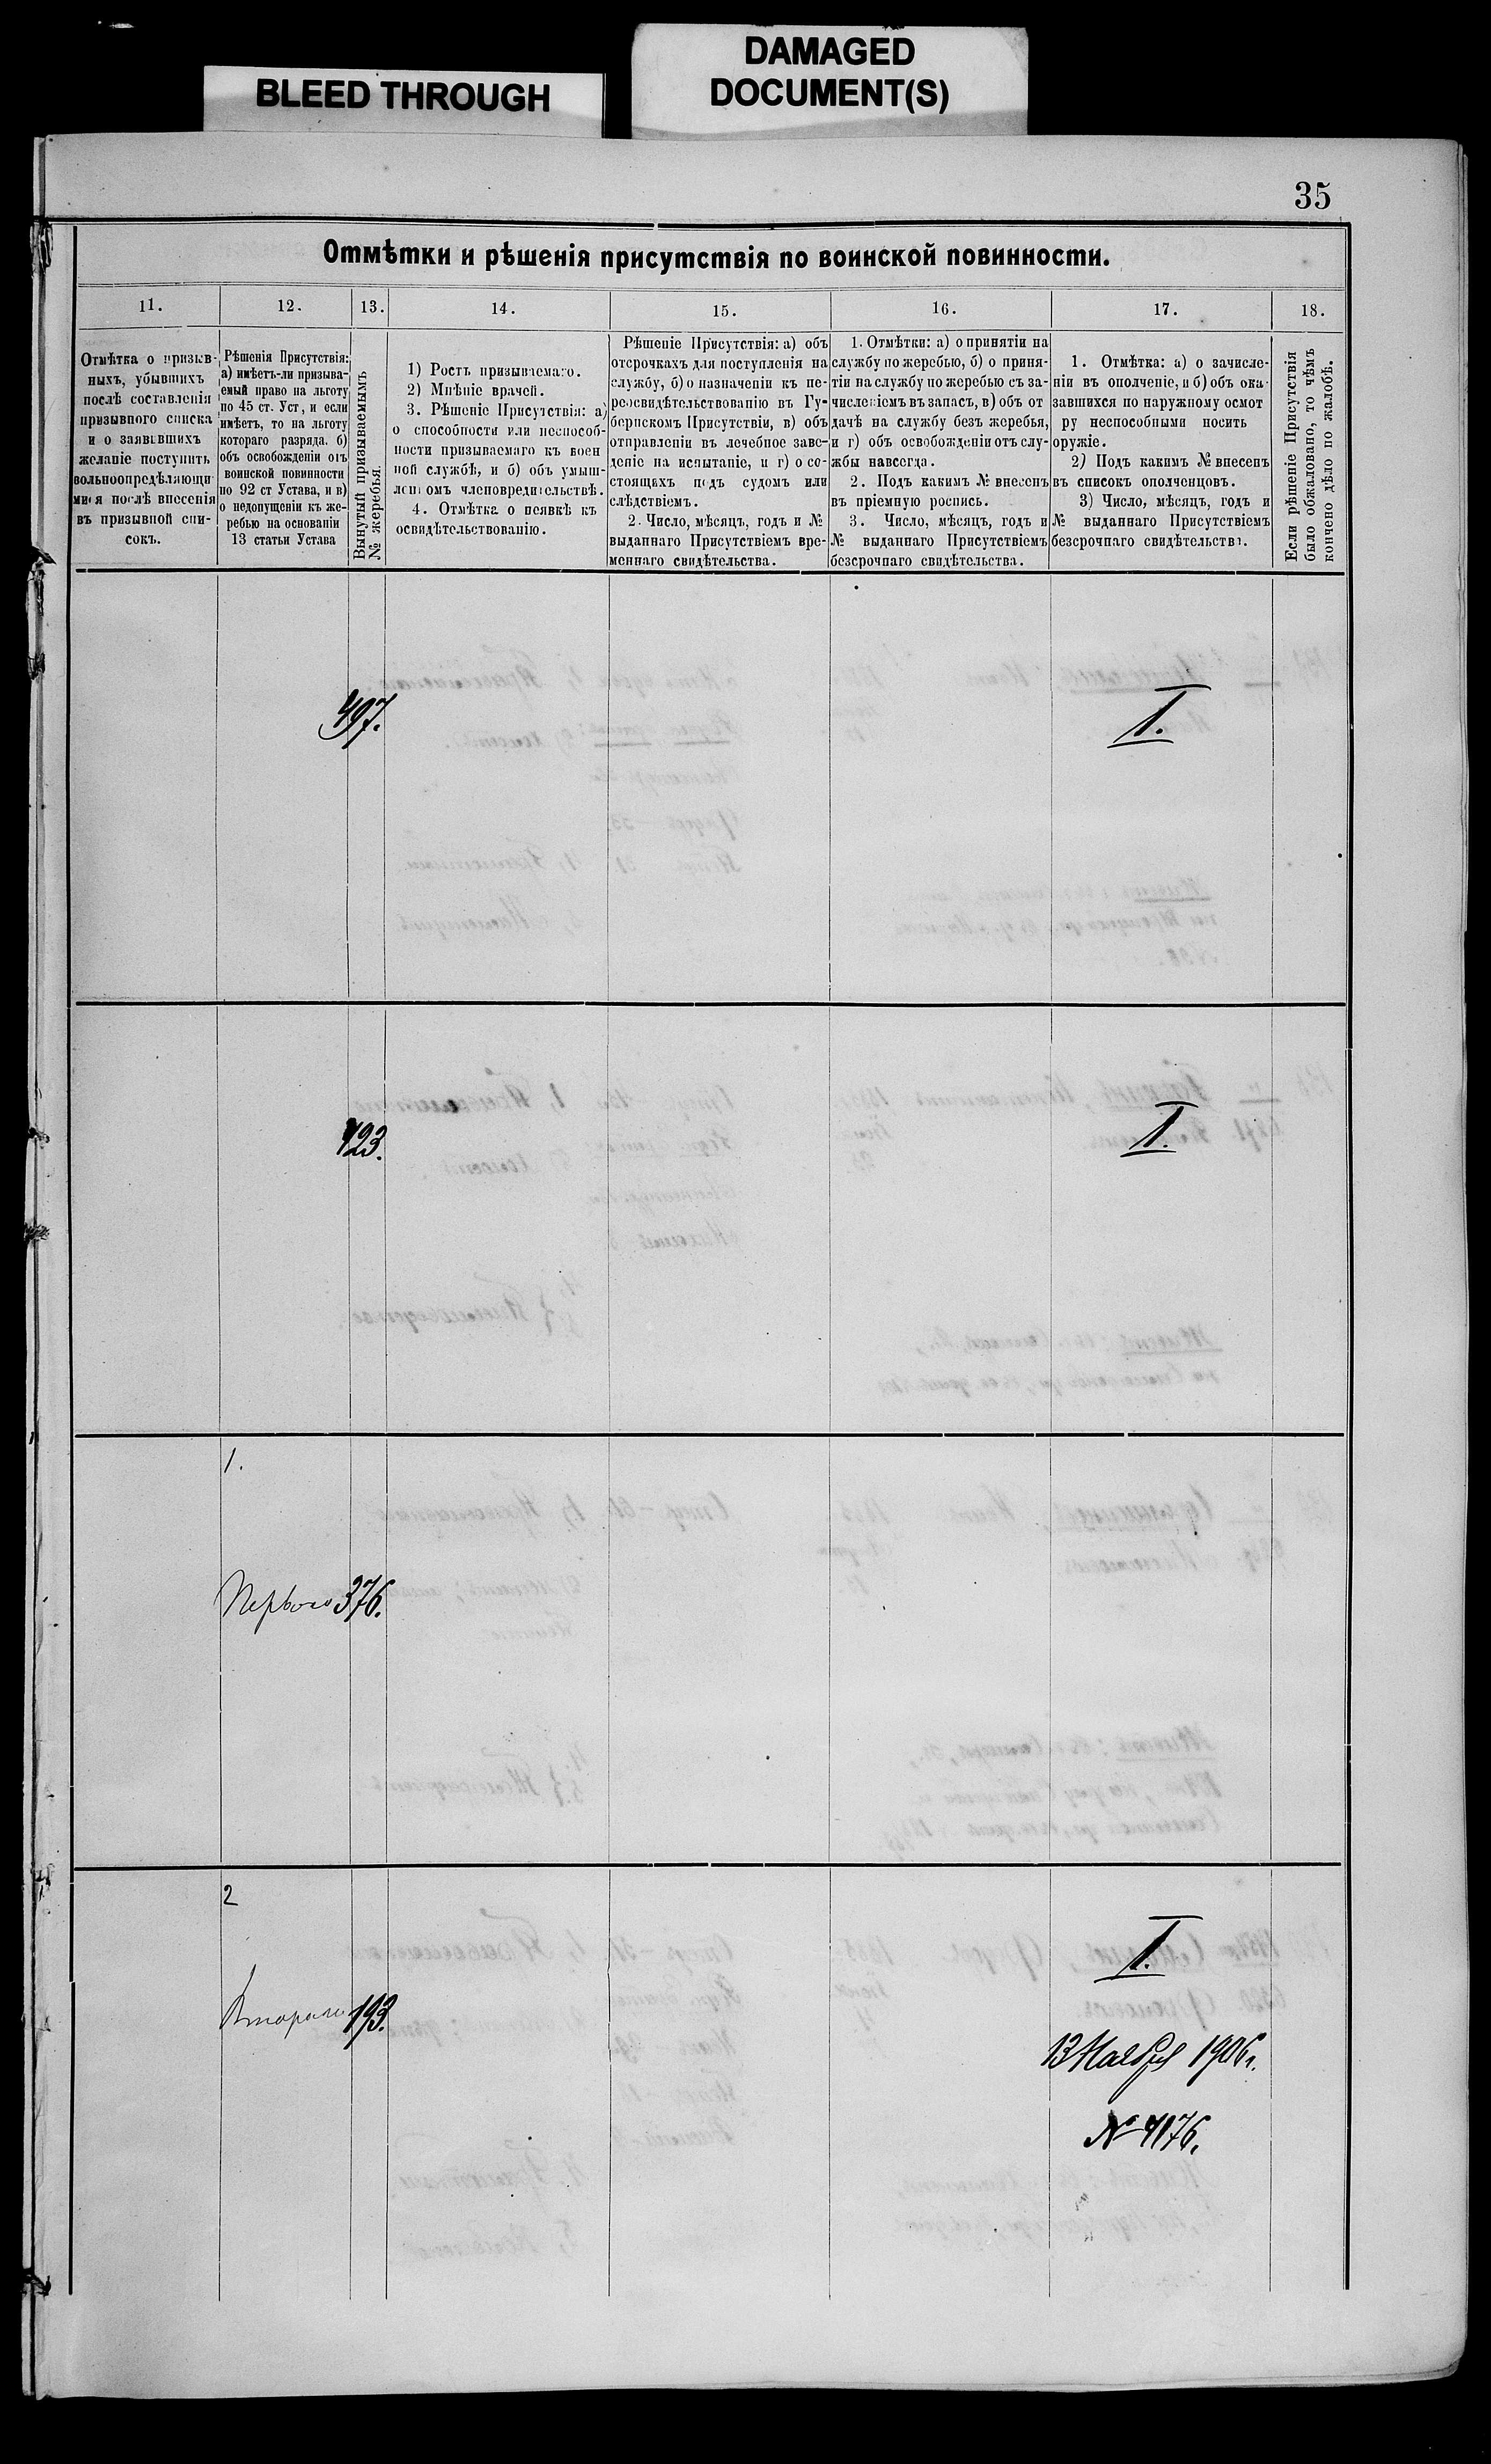 BLEED THROUGH
DAMAGED
DOCUMENT(S)
35
Отмѣтки и рѣшенія присутствія по воинской повинности.
11.
12.
13.
14.
15.
16.
17.
18.
Отмѣтка о призыв-
ныхъ, убывшихъ
послѣ составленія
призывного списка
и о заявившихъ
желаніе поступить
вольноопредѣляющи
мися послѣ внесенія
въ призывной спи-
сокъ.
Рѣшенія Присутствія:
а) имѣетъ-ли призыва-
емый право на льготу
по 45 ст. Уст, и если
имѣетъ, то на льготу
котораго разряда. б)
объ освобожденіи отъ
воинской повинности
по 92 ст Устава, и в)
о недопущеніи къ же-
ребью на основаніи
13 статьи Устава
Вынутый призываемымъ
№ жеребья.
1) Ростъ призываемаго.
2) Мнѣніе врачей.
3. Рѣшеніе Присутствія: а)
о способности или неспособ-
ности призываемаго къ воен
ной службѣ, и б) объ умыш-
ленномъ членовредительствѣ.
4. Отмѣтка о неявкѣ къ
освидѣтельствованію.
Рѣшеніе Присутствія: а) объ
отсрочкахъ для поступленія на
службу, б) о назначеніи къ пе-
реосвидѣтельствованію въ Гу-
бернскомъ Присутствіи, в) объ
отправленіи въ лечебное заве-
деніе на испытаніе, и г) о со-
стоящихъ подъ судомъ или
слѣдствіемъ.
2. Число, мѣсяцъ, годъ и №
выданнаго Присутствіемъ вре-
меннаго свидѣтельства.
1. Отмѣтки: а) о принятіи на
службу по жеребью, б) о приня-
тіи на службу по жеребью съ за-
численіемъ въ запасъ, в) объ от
дачѣ на службу безъ жеребья,
и г) объ освобожденіи отъ слу-
жбы навсегда.
2. Подъ какимъ № внесенъ
въ пріемную роспись.
3. Число, мѣсяцъ, годъ и
№ выданнаго Присутствіемъ
безсрочнаго свидѣтельства.
1. Отмѣтка: а) о зачисле-
ніи въ ополченіе, и б) объ ока-
завшихся по наружному осмот
ру неспособными носить
оружіе.
2) Подъ какимъ № внесенъ
въ списокъ ополченцовъ.
3) Число, мѣсяцъ, годъ и
№ выданнаго Присутствіемъ
безсрочнаго свидѣтельства.
Если рѣшеніе Присутствія
было обжаловано, то чѣмъ
кончено дѣло по жалобѣ.
497.
I.
423.
I.
1.
Первого 376.
2
193.
I.
13 Ноября 1906 г.
№ 4176.